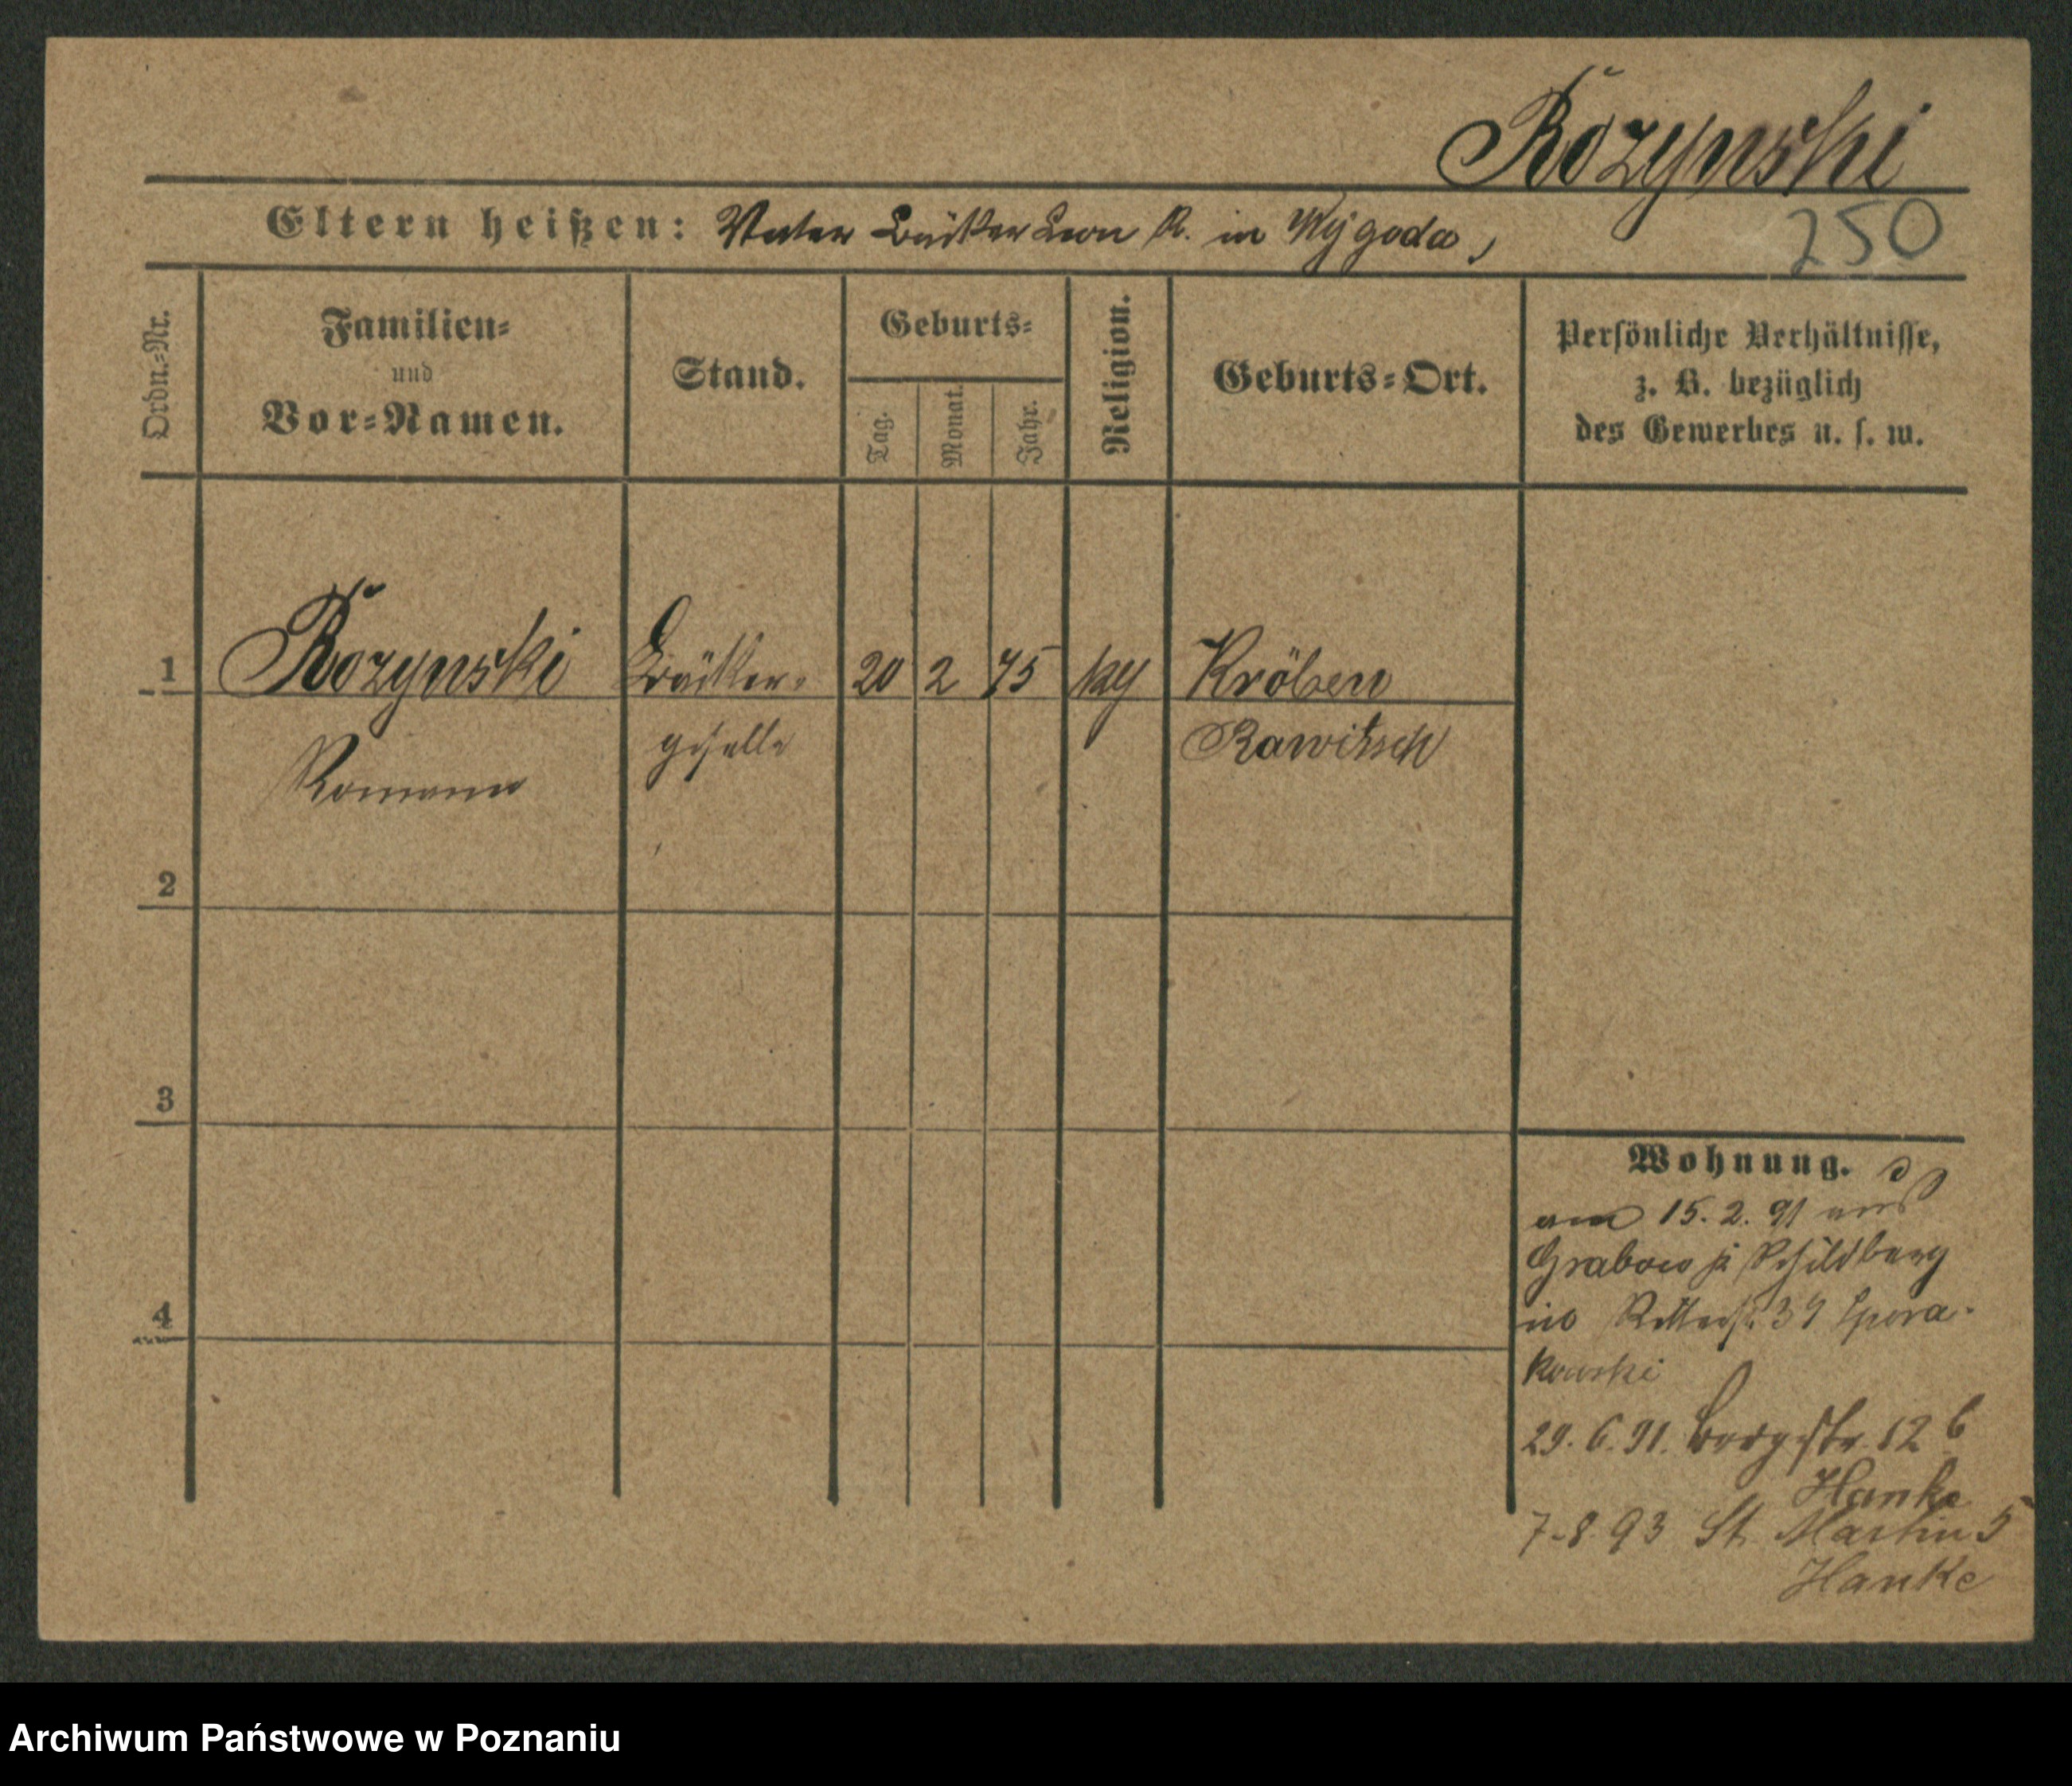 Rozynski
Eltern heißen: Vater Bäcker Leon R. in Wygoda,
250
Ordn.=Nr.
Familien=
und
Vor=Namen.
Stand.
Geburts=
Tag.
Monat.
Jahr.
Religion.
Geburts=Ort.
Persönliche Verhältnisse,
z. B. bezüglich
des Gewerbes u. s. w.
1 Rozynski Bäcker- 20 2 75 Kröben
Roman geselle Rawitsch
2
3
4
Wohnung.
am 15. 2. 91 aus
Grabow Schildberg
Ritterstr.
kowski
29. 6. 91. Bergstr. 12 b
Hanke
7-8 93 St. Martin 5
Hanke
Archiwum Państwowe w Poznaniu